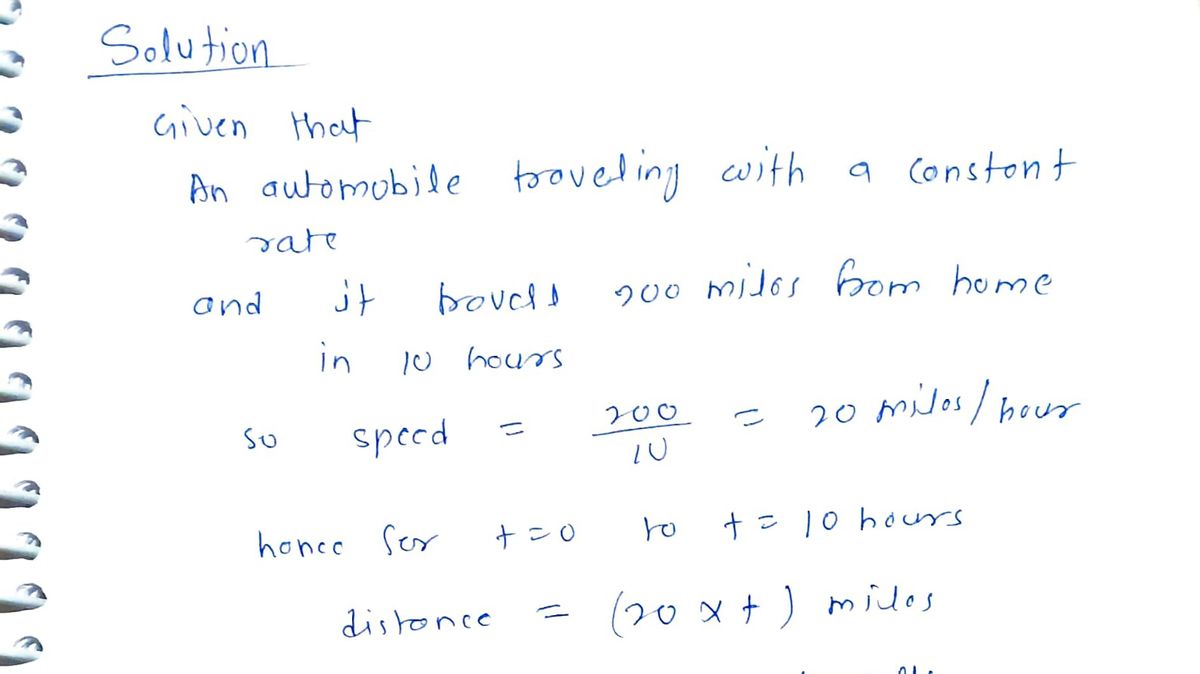 Solution
Given that
An automobile traveling with a constant
rate
and it travels 200 miles from home
in 10 hours
so speed = 200/10 = 20 miles/hour
hence for t=0 to t=10 hours
distance = (20 x t) miles